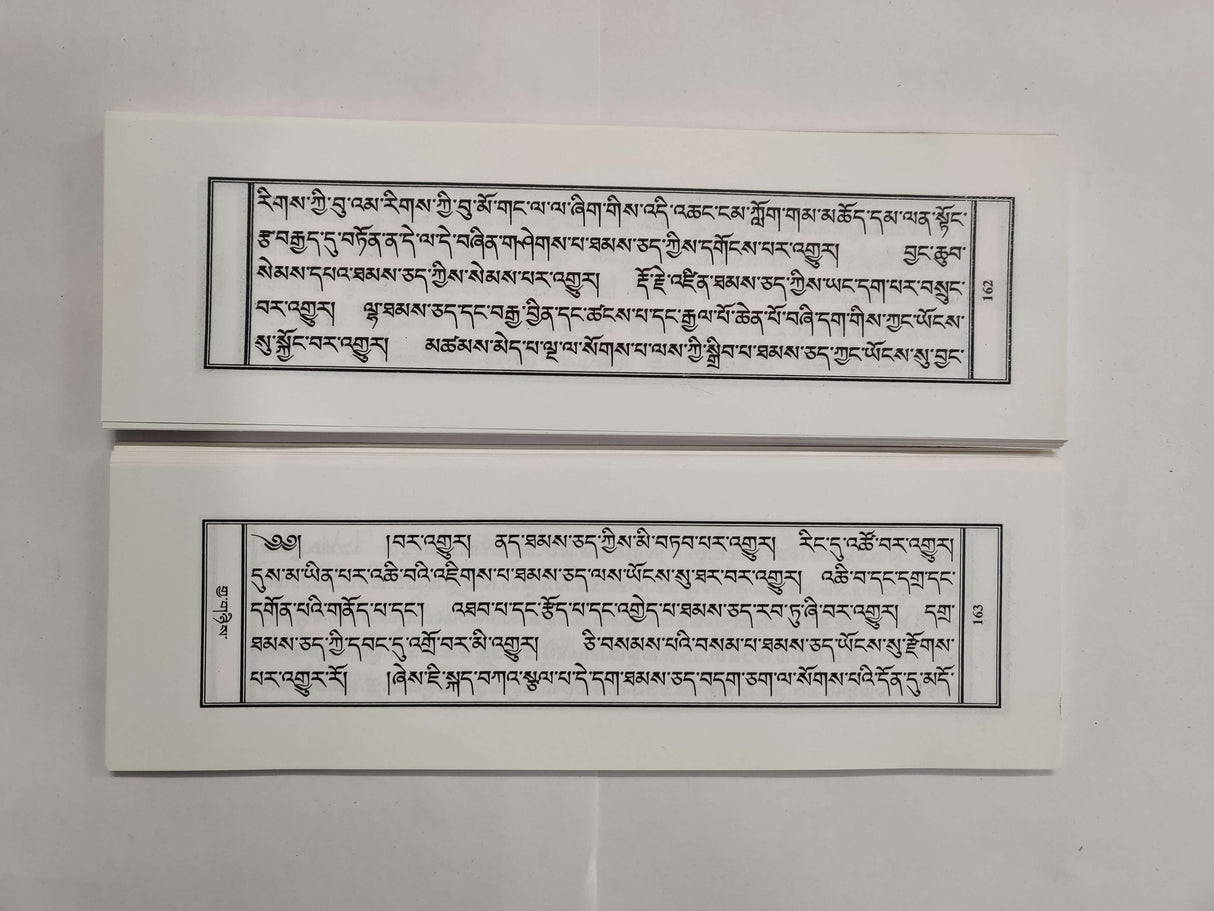 རིགས་ཀྱི་བུ་འམ་རིགས་ཀྱི་བུ་མོ་གང་ལ་ལ་ཞིག་གིས་འདི་འཆང་ངམ་ཀློག་གམ་མཆོད་དམ་ལན་སྟོང་
རྩ་བརྒྱད་དུ་བཏོན་ན་དེ་ལ་དེ་བཞིན་གཤེགས་པ་ཐམས་ཅད་ཀྱིས་དགོངས་པར་འགྱུར། བྱང་ཆུབ་
སེམས་དཔའ་ཐམས་ཅད་ཀྱིས་སེམས་པར་འགྱུར། རྡོ་རྗེ་འཛིན་ཐམས་ཅད་ཀྱིས་ཡང་དག་པར་བསྲུང་
བར་འགྱུར། ལྷ་ཐམས་ཅད་དང་བརྒྱ་བྱིན་དང་ཚངས་པ་དང་རྒྱལ་པོ་ཆེན་པོ་བཞི་དག་གིས་ཀྱང་ཡོངས་
སུ་སྐྱོང་བར་འགྱུར། མཚམས་མེད་པ་ལྔ་ལ་སོགས་པ་ལས་ཀྱི་སྒྲིབ་པ་ཐམས་ཅད་ཀྱང་ཡོངས་སུ་བྱང་
162
༄༅། །བར་འགྱུར། ནད་ཐམས་ཅད་ཀྱིས་མི་བཏབ་པར་འགྱུར། རིང་དུ་འཚོ་བར་འགྱུར།
དུས་མ་ཡིན་པར་འཆི་བའི་འཇིགས་པ་ཐམས་ཅད་ལས་ཡོངས་སུ་ཐར་བར་འགྱུར། འཆི་བ་དང་དགྲ་དང་
དགོན་པའི་གནོད་པ་དང་། འཐབ་པ་དང་རྩོད་པ་དང་འགྱེད་པ་ཐམས་ཅད་རབ་ཏུ་ཞི་བར་འགྱུར། དགྲ་
ཐམས་ཅད་ཀྱི་དབང་དུ་འགྲོ་བར་མི་འགྱུར། ཅི་བསམས་པའི་བསམ་པ་ཐམས་ཅད་ཡོངས་སུ་རྫོགས་
པར་འགྱུར་རོ། །ཞེས་ཇི་སྐད་བཀའ་སྩལ་པ་དེ་དག་ཐམས་ཅད་བདག་ཅག་ལ་སོགས་པའི་དོན་དུ་མདོ་
163